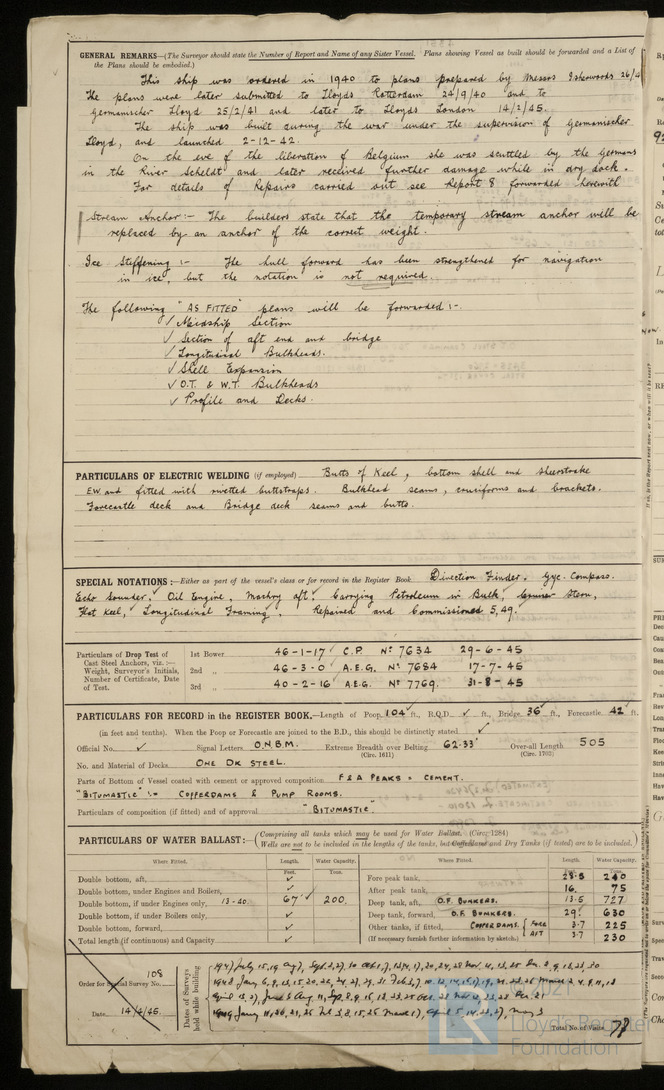 GENERAL REMARKS—(The Surveyor should state the Number of Report and Name of any Sister Vessel. Plans showing Vessel as built should be forwarded and a List of
the Plans should be embodied.)
This ship was ordered in 1940 to plans prepared by Messrs Isherwoods 26/4
The plans were later submitted to Lloyds Rotterdam 24/9/40 and to
Germanischer Lloyd 25/2/41 and later to Lloyds London 14/2/45.
The ship was built during the war under the supervision of Germanischer
Lloyd, and launched 2-12-42.
On the eve of the liberation of Belgium she was scuttled by the Germans
in the River Scheldt and later received further damage while in dry dock.
For details of Repairs carried out see Report 8 forwarded herewith
Stream Anchor:- The builders state that the temporary stream anchor will be
replaced by an anchor of the correct weight.
Ice Stiffening :- The hull forward has been strengthened for navigation
in ice, but the notation is not required.
The following "AS FITTED" plans will be forwarded:-
✓ Midship Section
✓ Section of aft end and bridge
✓ Longitudinal Bulkheads.
✓ Shell Expansion
✓ O.T. & W.T. Bulkheads
✓ Profile and Decks.
PARTICULARS OF ELECTRIC WELDING (if employed) Butts of Keel, bottom shell and sheerstrake
E.W. and fitted with rivetted buttstraps. Bulkhead seams, cruciforms and brackets.
Forecastle deck and Bridge deck seams and butts.
SPECIAL NOTATIONS:—Either as part of the vessel's class or for record in the Register Book. Direction Finder. Gyr. Compass.
Echo Sounder, Oil Engine, Machry aft, Carrying Petroleum in Bulk, Cruiser Stern,
Flat Keel, Longitudinal Framing. Repaired and Commissioned 5,49.
Particulars of Drop Test of
Cast Steel Anchors, viz. :—
Weight, Surveyor's Initials,
Number of Certificate, Date
of Test.
1st Bower 46-1-17 C.P. No 7634 29-6-45
2nd " 46-3-0 A.E.G. No 7684 17-7-45
3rd " 40-2-16 A.E.G. No 7769. 31-8-45
PARTICULARS FOR RECORD in the REGISTER BOOK.—Length of Poop 104 ft., R.Q.D. ✓ ft., Bridge 36 ft., Forecastle 42 ft.
(in feet and tenths). When the Poop or Forecastle are joined to the B.D., this should be distinctly stated ✓
Official No. ✓ Signal Letters O.N.B.M. Extreme Breadth over Belting 62.33' Over-all Length 505
(Circ. 1611) (Circ. 1703)
No. and Material of Decks ONE DK STEEL.
Parts of Bottom of Vessel coated with cement or approved composition F & A PEAKS = CEMENT.
"BITUMASTIC" :- COFFERDAMS & PUMP ROOMS.
Particulars of composition (if fitted) and of approval "BITUMASTIC".
PARTICULARS OF WATER BALLAST:— (Comprising all tanks which may be used for Water Ballast. (Circ. 1284)
Wells are not to be included in the lengths of the tanks, but Cofferdams and Dry Tanks (if tested) are to be included.)
Where Fitted. Length. Water Capacity. Where Fitted. Length. Water Capacity.
Feet. Tons.
Double bottom, aft, ✓
Double bottom, under Engines and Boilers, ✓
Double bottom, if under Engines only, 13-40. 67' 200.
Double bottom, if under Boilers only, ✓
Double bottom, forward, ✓
Total length (if continuous) and Capacity ✓
Fore peak tank, 28.5 240
After peak tank, 16. 75
Deep tank, aft, O.F. BUNKERS. 13.5 727
Deep tank, forward, O.F. BUNKERS. 29. 630
Other tanks, if fitted, COFFERDAMS. FORE 3.7 225
(If necessary furnish further information by sketch.) AFT 3.7 230
Order for Special Survey No. 108
Date 14/2/45.
Dates of Surveys held while building
Total No. of Visits 78
© 2021
Lloyd's Register
Foundation